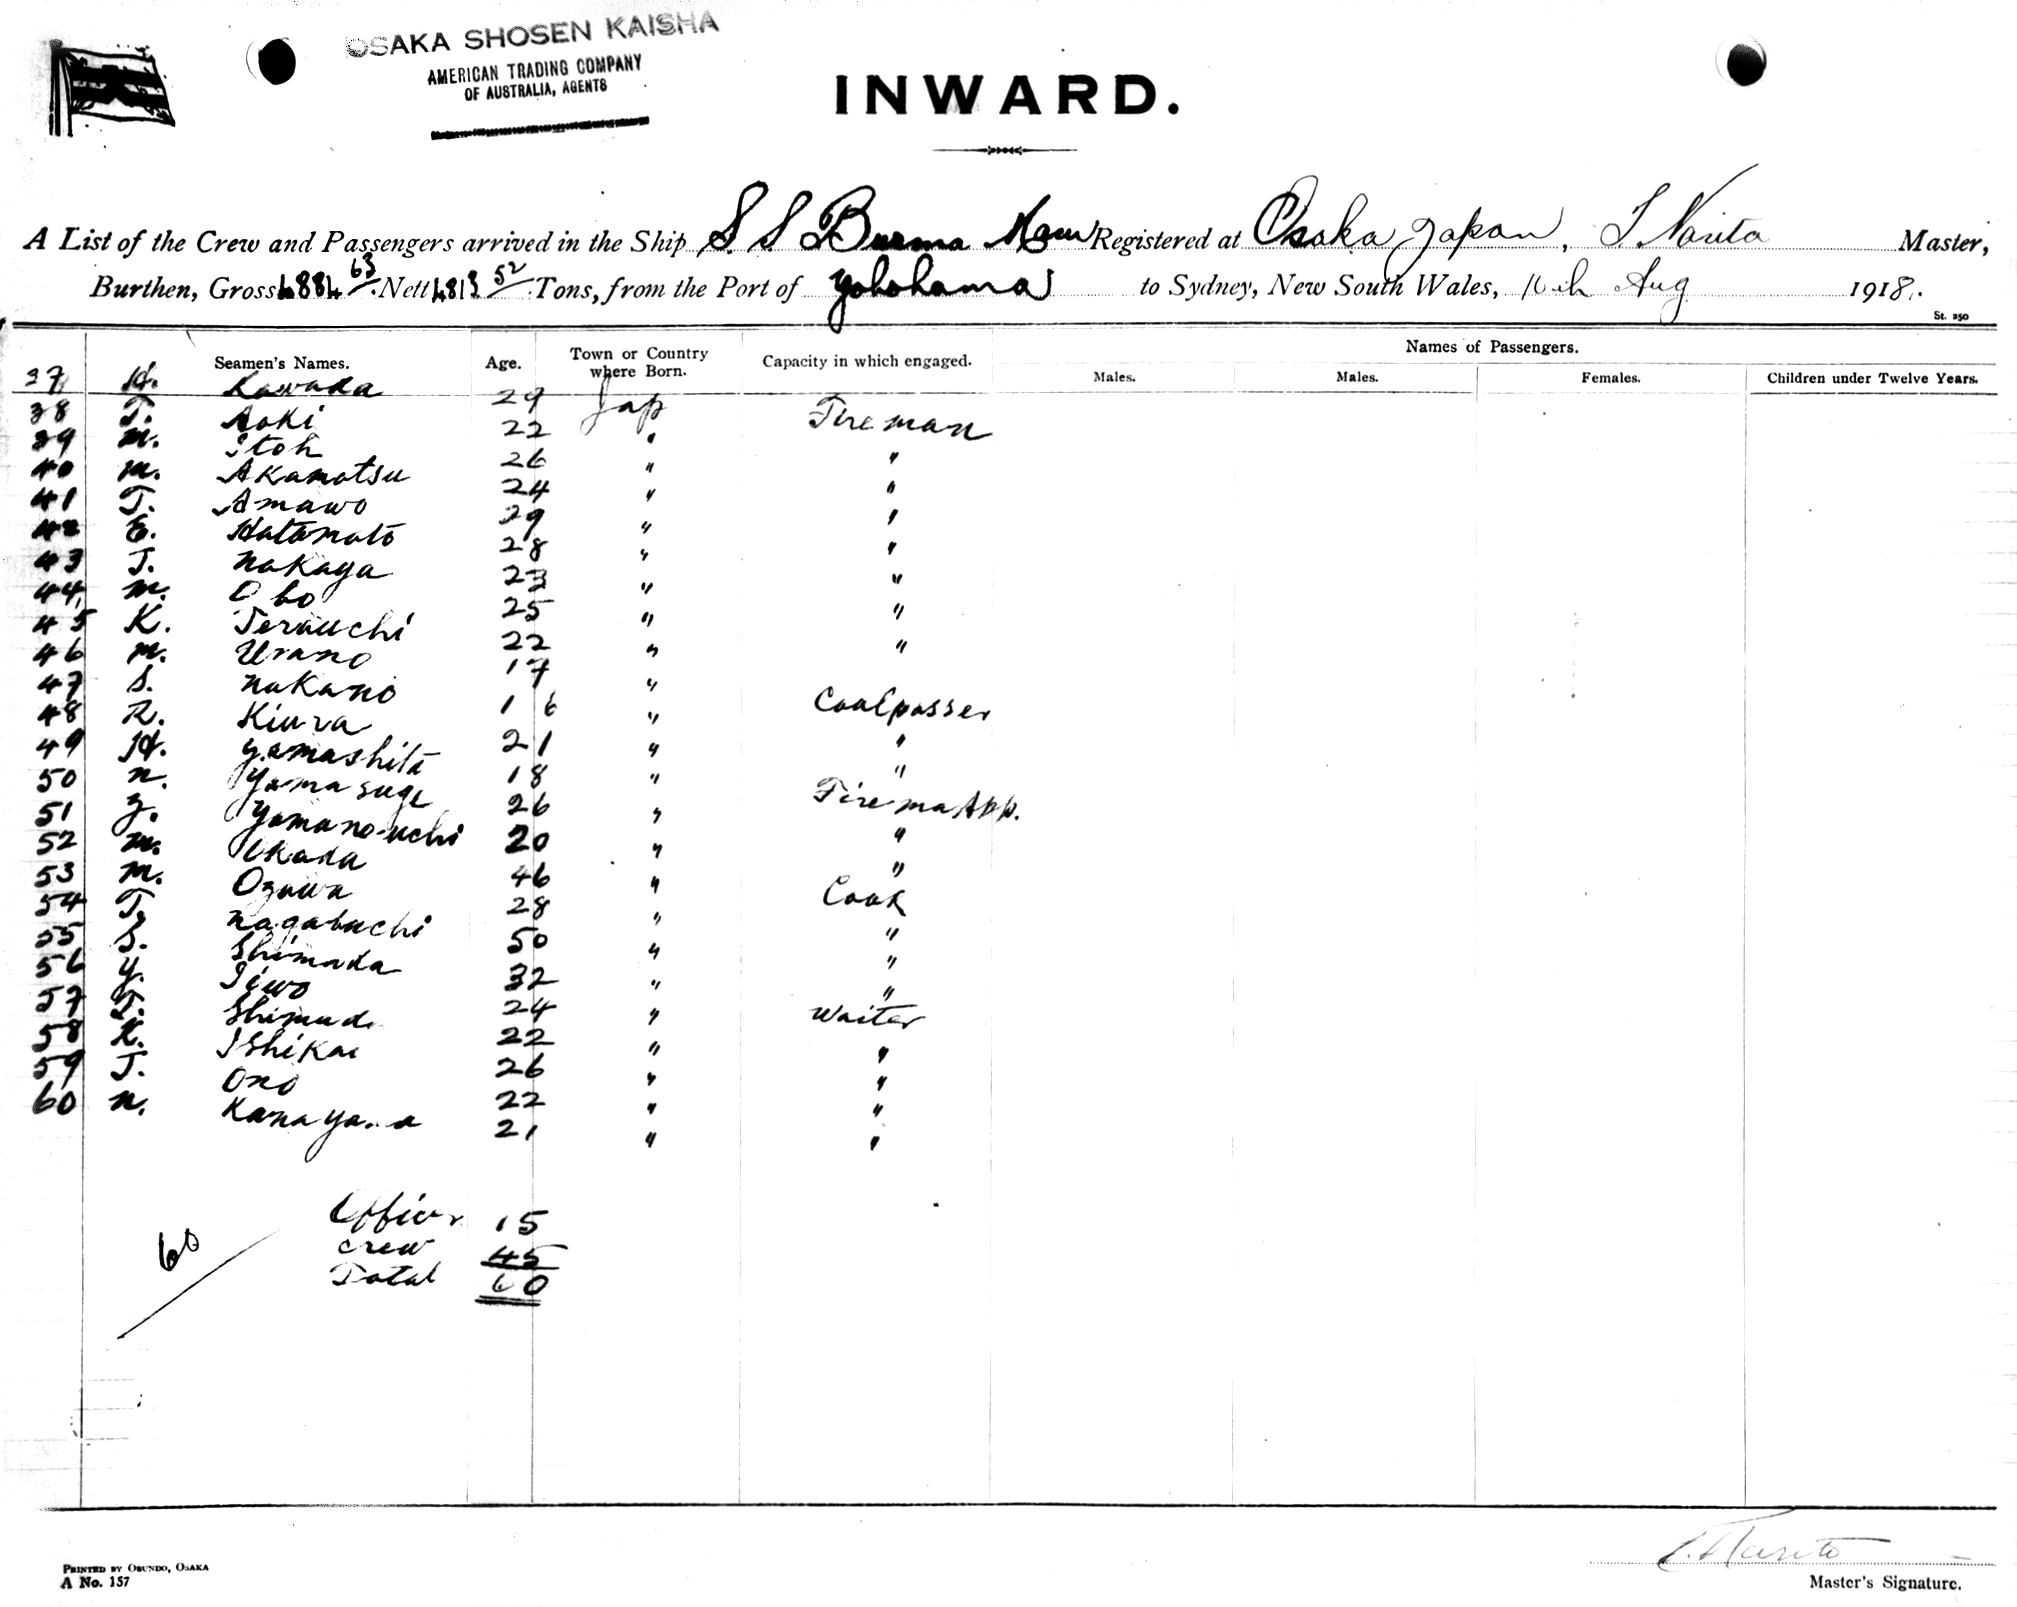 OSAKA SHOSEN KAISHA
AMERICAN TRADING COMPANY
OF AUSTRALIA, AGENTS
INWARD.
A List of the Crew and Passengers arrived in the Ship S S Burma Maru Registered at Osaka Japan, T Narita Master,
Burthen, Gross 4884 63 Nett 4813 52 Tons, from the Port of Yokohama to Sydney, New South Wales, Aug 1918.
St. 250
Seamen's Names. Age. Town or Country where Born. Capacity in which engaged. Names of Passengers.
Males. Males. Females. Children under Twelve Years.
37 H. Kawada 29 Jap Fireman
38 T. Aoki 22 " "
39 M. Itoh 26 " "
40 M. Akamatsu 24 " "
41 T. Amawo 29 " "
42 E. Hatamoto 28 " "
43 J. Nakaya 23 " "
44 M. Obo 25 " "
45 K. Terauchi 22 "
46 M. Urano 17 " Coalpasser
47 S. Nakano 16 " "
48 R. Kiura 21 " "
49 H. Yamashita 18 " Firema App.
50 N. Yamasuge 26 " "
51 Y. Yamano-uchi 20 " "
52 M. Okada 46 " Cook
53 M. Ozawa 28 " "
54 T. Nagabuchi 50 " "
55 S. Shimada 32 " "
56 Y. Iiwo 24 " Waiter
57 T. Shimad 22 " "
58 K. Ishikai 26 " "
59 J. Ono 22 " "
60 N. Kanaya a 21 " "
Officer 15
crew 45
60
Total 60
Printed by Obundo, Osaka
A No. 157
T. Narita
Master's Signature.